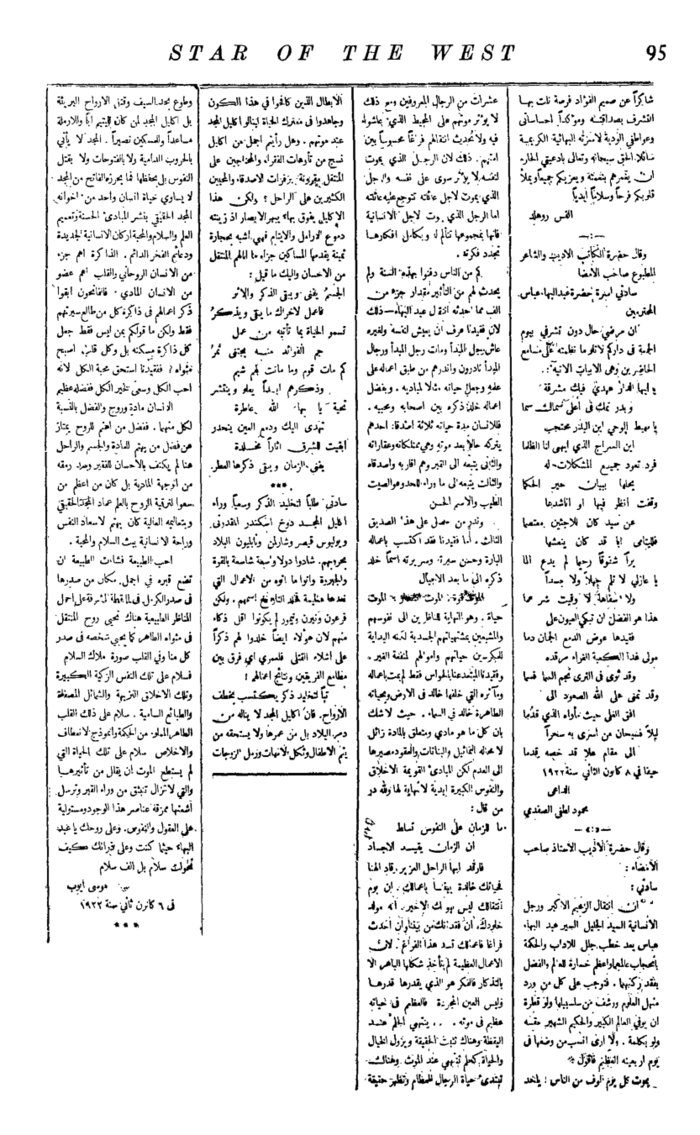 STAR OF THE WEST 95
شاكراً عن صميم الفؤاد فرصة نلت بها
التشرف بصداقته ومؤكداً احساساتي
وعواطفي الودية لأسرته البهائية الكريمة
سائلا الحق سبحانه وتعالى
ان يغمرهم بنعمته ويعزيكم جميعاً ويملأ
قلوبكم فرحاً وسلاماً ابدياً
القس روهلد
وقال حضرة الكاتب الاديب والشاعر
المطبوع صاحب الامضا
سادتي اسرة حضرة عبد البهاء عباس
المحترمين
ان مرضي حال دون تشرفي بيوم
الجمعة في داركم لاتلو ما نظمته على مسامع
الحاضرين وهي الابيات الآتية:
وبدر تمك في أعلى سمائك سما
يا مهبط الوحي ابن البدر محتجب
ابن السراج الذي ابهى لنا الظلما
فرد تعود جميع المشكلات له
يحلها ببيان حير الحكما
وقفت انظر فيها او اناشدها
عن سيد كان للاجئين معتصما
فليتامى ابا قد كان ينعشها
براً شفوقا رحما لم يدع الما
يا عاذلي لا تلم جهلا ولا حسداً
ولا سفاهة لا وقيت شر عما
هذا هو الفضل ان تبكي العيون على
فقيدها عرض الدمع الجمان دما
مولى فدا الكعبة الغراء مرقده
وقد ثوى في الثرى نجم السها فسما
وقد تمنى على الله الصعود الى
افق العلى حيث مأواه الذي قدما
ليلاً فسبحان من اسرى به سحراً
الى مقام علا قد خصه قدما
حيفا في ٨ كانون الثاني سنة ١٩٢٢
الداعي
محمود لطفي الصفدي
وقال حضرة الاديب الاستاذ صاحب
الامضاء :
سادتي :
ان انتقال الزعيم الاكبر ورجل
الانسانية السيد الجليل السير عبد البهاء
عباس يعد خطب جلل للآداب والحكمة
واعظم خسارة للعالم والفضل
بفقد ركنهما. فتوجب على كل من ورد
منهل العلوم ورشف من سلسبيلها ولو قطرة
ان يوفي العالم الكبير والحكيم الشهير حقه
ولو بكلمة. ولا ارى انسب من وضعها في
يوم اربعينه العظيم فاقول
يموت كل يوم الوف من الناس : يلحد
عشرات من الرجال المعروفين ومع ذلك
لا يؤثر موتهم على المحيط الذي عاشوا
فيه ولا يحدث انتقالهم فراغاً محسوساً بين
امتهم. ذلك لان الرجل الذي يموت
لنفسه لا يؤثر سوى على نفسه والرجل
الذي يموت لاجل عائلته تتوجع عليه عائلته
اما الرجل الذي يموت لاجل الانسانية
فانها بمجموعها تتألم له وبكامل افكارها
تمجد فكرته.
كم من الناس دفنوا بهذه السنة ولم
يحدث لهم من التأثير مقدار جزء من
الف مما احدثه انتقال عبد البهاء ـــ ذلك
لان فقيدنا عرف ان يعيش لنفسه ولغيره
عاش رجل المبدأ ومات رجل المبدأ ورجال
المبدأ نادرون واندرهم من طابق اعماله على
عقيدته وجعل حياته مثالا لمباديه. وبفضل
اعماله خلد ذكره بين اصحابه ومحبيه.
فللانسان مدة حياته ثلاثة اصدقاء: احدهم
يتركه حالا بعد موته وهي ممتلكاته وعقاراته
والثاني يتبعه الى القبر وهم اقاربه واصدقاه
والثالث يتبعه الى ما وراء اللحد وهو الصيت
الطيب والاسم الحسن
وندر من حصل على هذا الصديق
الثالث. اما فقيدنا فقد اكتسب باعماله
البارة وحسن سيرته وسريرته اسماً خلد
ذكره الى ما بعد الاجيال
حياة. وهو النهاية للناظرين الى نفوسهم
والمشبعين بمشتهياتهم الجسدية لكنه البداية
للمفكرين بحياتهم واموالهم لمنفعة الغير.
وفقيدنا المبتعد عنا بالحواس فقط لم يمت باعماله
ومآثره التي خلفها خالد في الارض وبحياته
الطاهرة خالد في السماء. حيث لا شك
بان كل ما هو مادي ومتعلق بالمادة زائل
لا محالة التماثيل والبنايات والعقود مصيرها
الى العدم لكن المبادئ القويمة الاخلاق
والنفوس الكبيرة ابدية لا نهاية لها ولله در
من قال :
ما للزمان على النفوس تسلط
ان الزمان يقيسد الاجساد
فارقد ايها الراحل العزيز رقاد الهنا
فحياتك خالدة بيننا باعمالك. ان يوم
انتقالك ليس يومك الاخير. انه مولد
خلودك. ان فقدناك من بيننا وان احدث
فراغا فاعمالك تسد هذا الفراغ. لان
الاعمال العظيمة لم تأخذ شكلها الباهر الا
بالتذكار فالفكر هو الذي يقدرها قدرها
وليس العين المجردة فالعظيم في حياته
عظيم في موته ... ينتهي الحلم عند
اليقظة وهناك تثبت الحقيقة ويزول الخيال
والحياة كحلم تنتهي عند الموت وهنالك
تبتدئ حياة الرجال العظام وتظهر حقيقة
الابطال الذين كافحوا في هذا الكون
وجاهدوا في معترك الحياة لينالوا اكليل المجد
عند موتهم. وهل رأيتم اجمل من اكليل
نسج من تأوهات الفقراء والمحتاجين على
المنتقل مقرونة بزفرات الاصدقاء والمحبين
الكثيرين على الراحل ؟ ولكن هذا
الاكليل يفوق بهاء ويبهر الابصار اذ زينته
دموع الارامل والايتام فهي اشبه بحجارة
ثمينة يقدمها المساكين جزاء ما قدم المنتقل
من الاحسان واليك ما قيل :
الجسم يفنى ويبقى الذكر والاثر
فاعمل لاخراك ما يبقى ويدخر
تسمو الحياة بما تأتيه من عمل
جم الفوائد منه يجتنى ثمر
كم مات قوم وما ماتت لهم شيم
وذكرهم ابداً يعلو وينتشر
تحية يا بهاء الله عاطرة
تهدى اليك ودمع العين ينحدر
ابقيت للشرق اثاراً مخلدة
يفنى الزمان ويبقى ذكرها العطر
***
سادتي. طلباً لتخليد الذكر وسعياً وراء
اكليل المجد دوخ اسكندر المقدوني
ويوليوس قيصر وشارلمن ونابليون البلاد
بحروبهم. شادوا دولا وسعة شاسعة بالقوة
والجبروت واتوا ما اتوه من الاعمال التي
نعدها عظيمة فخلد التاريخ اسمهم. ولكن
فرعون ونيرون وتيمور لم يكونوا اقل ذكاء
منهم لان هؤلاء ايضاً خلدوا لهم ذكراً
على اشلاء القتلى فلعمري اي فرق بين
مطامع الفريقين ونتائج اعمالهم ؟
تباً لتخليد ذكر يكتسب بخطف
الارواح. فان اكليل المجد لا يناله من
دمر البلاد بل من عمرها ولا يستحقه من
يتم الاطفال وثكل الامهات ورمل الزوجات
وطوع بحد السيف وقتل الارواح البريئة
بل اكليل المجد لمن كان لليتيم اباً وللارملة
مساعداً وللمسكين نصيراً. المجد لا يأتي
بالحروب الدامية ولا بالفتوحات ولا بقتل
النفوس بل بحفظها فما يحرزه الفاتح من المجد
لا يساوي حياة انسان واحد من اخوانه
المجد الحقيقي بنشر المبادئ الحسنة وتعميم
العلم والسلام والمحبة اركان الانسانية الجديدة
ودعائم الفخر الدائم. الذاكرة اهم جزء
من الانسان الروحاني والقلب اهم عضو
من الانسان المادي. فالفاتحون ابقوا
ذكر اعمالهم في ذاكرة كل من طالع سيرتهم
فقط ولكن ما قولكم بمن ليس فقط جعل
كل ذاكرة مسكنه بل وكل قلب اصبح
مثواه ؟ ففقيدنا استحق محبة الكل لانه
احب الكل وسعى لخير الكل ففضله عظيم
الانسان مادة وروح والفضل بالنسبة
لكل منهما. ففضل من اهتم للروح يمتاز
عن فضل من يهتم للمادة والجسم والراحل
هنا لم يكتف بالاحسان للفقير وسد رمقه
من الوجهة المادية بل كان من اعظم من
سعوا لترقية الروح بالعلم عماد المجد الحقيقي
وبتعاليمه العالية كان يهتم لاسعاد النفس
وراحة الانسانية ببث السلام والمحبة.
احب الطبيعة فشاءت الطبيعة ان
تضع قبره في اجمل مكان من صدرها
في صدر الكرمل في المشرفة على اجمل
المناظر الطبيعية هناك تحيي روح المنتقل
في مثواه الطاهر كما يحيي شخصه في صدر
كل منا وفي القلب صورة ملاك السلام
فسلام على تلك النفس الزكية الكبيرة
وتلك الاخلاق النزيهة والشمائل المصفاة
والطبائع السامية. سلام على ذلك القلب
الطاهر المملوء من الحكمة وانموذج الانعطاف
والاخلاص سلام على تلك الحياة التي
لم يستطع الموت ان يقلل من تأثيرها
والتي لا تزال تنبثق من وراء القبر وترسل
أشعتها ممزقة عناصر هذا الوجود ومستولية
على العقول والنفوس. وعلى روحك يا عبد
البهاء حيثما كنت وعلى كيف
تحولت سلام بل الف سلام
موسى ايوب
في ٦ كانون ثاني سنة ١٩٢٢
***